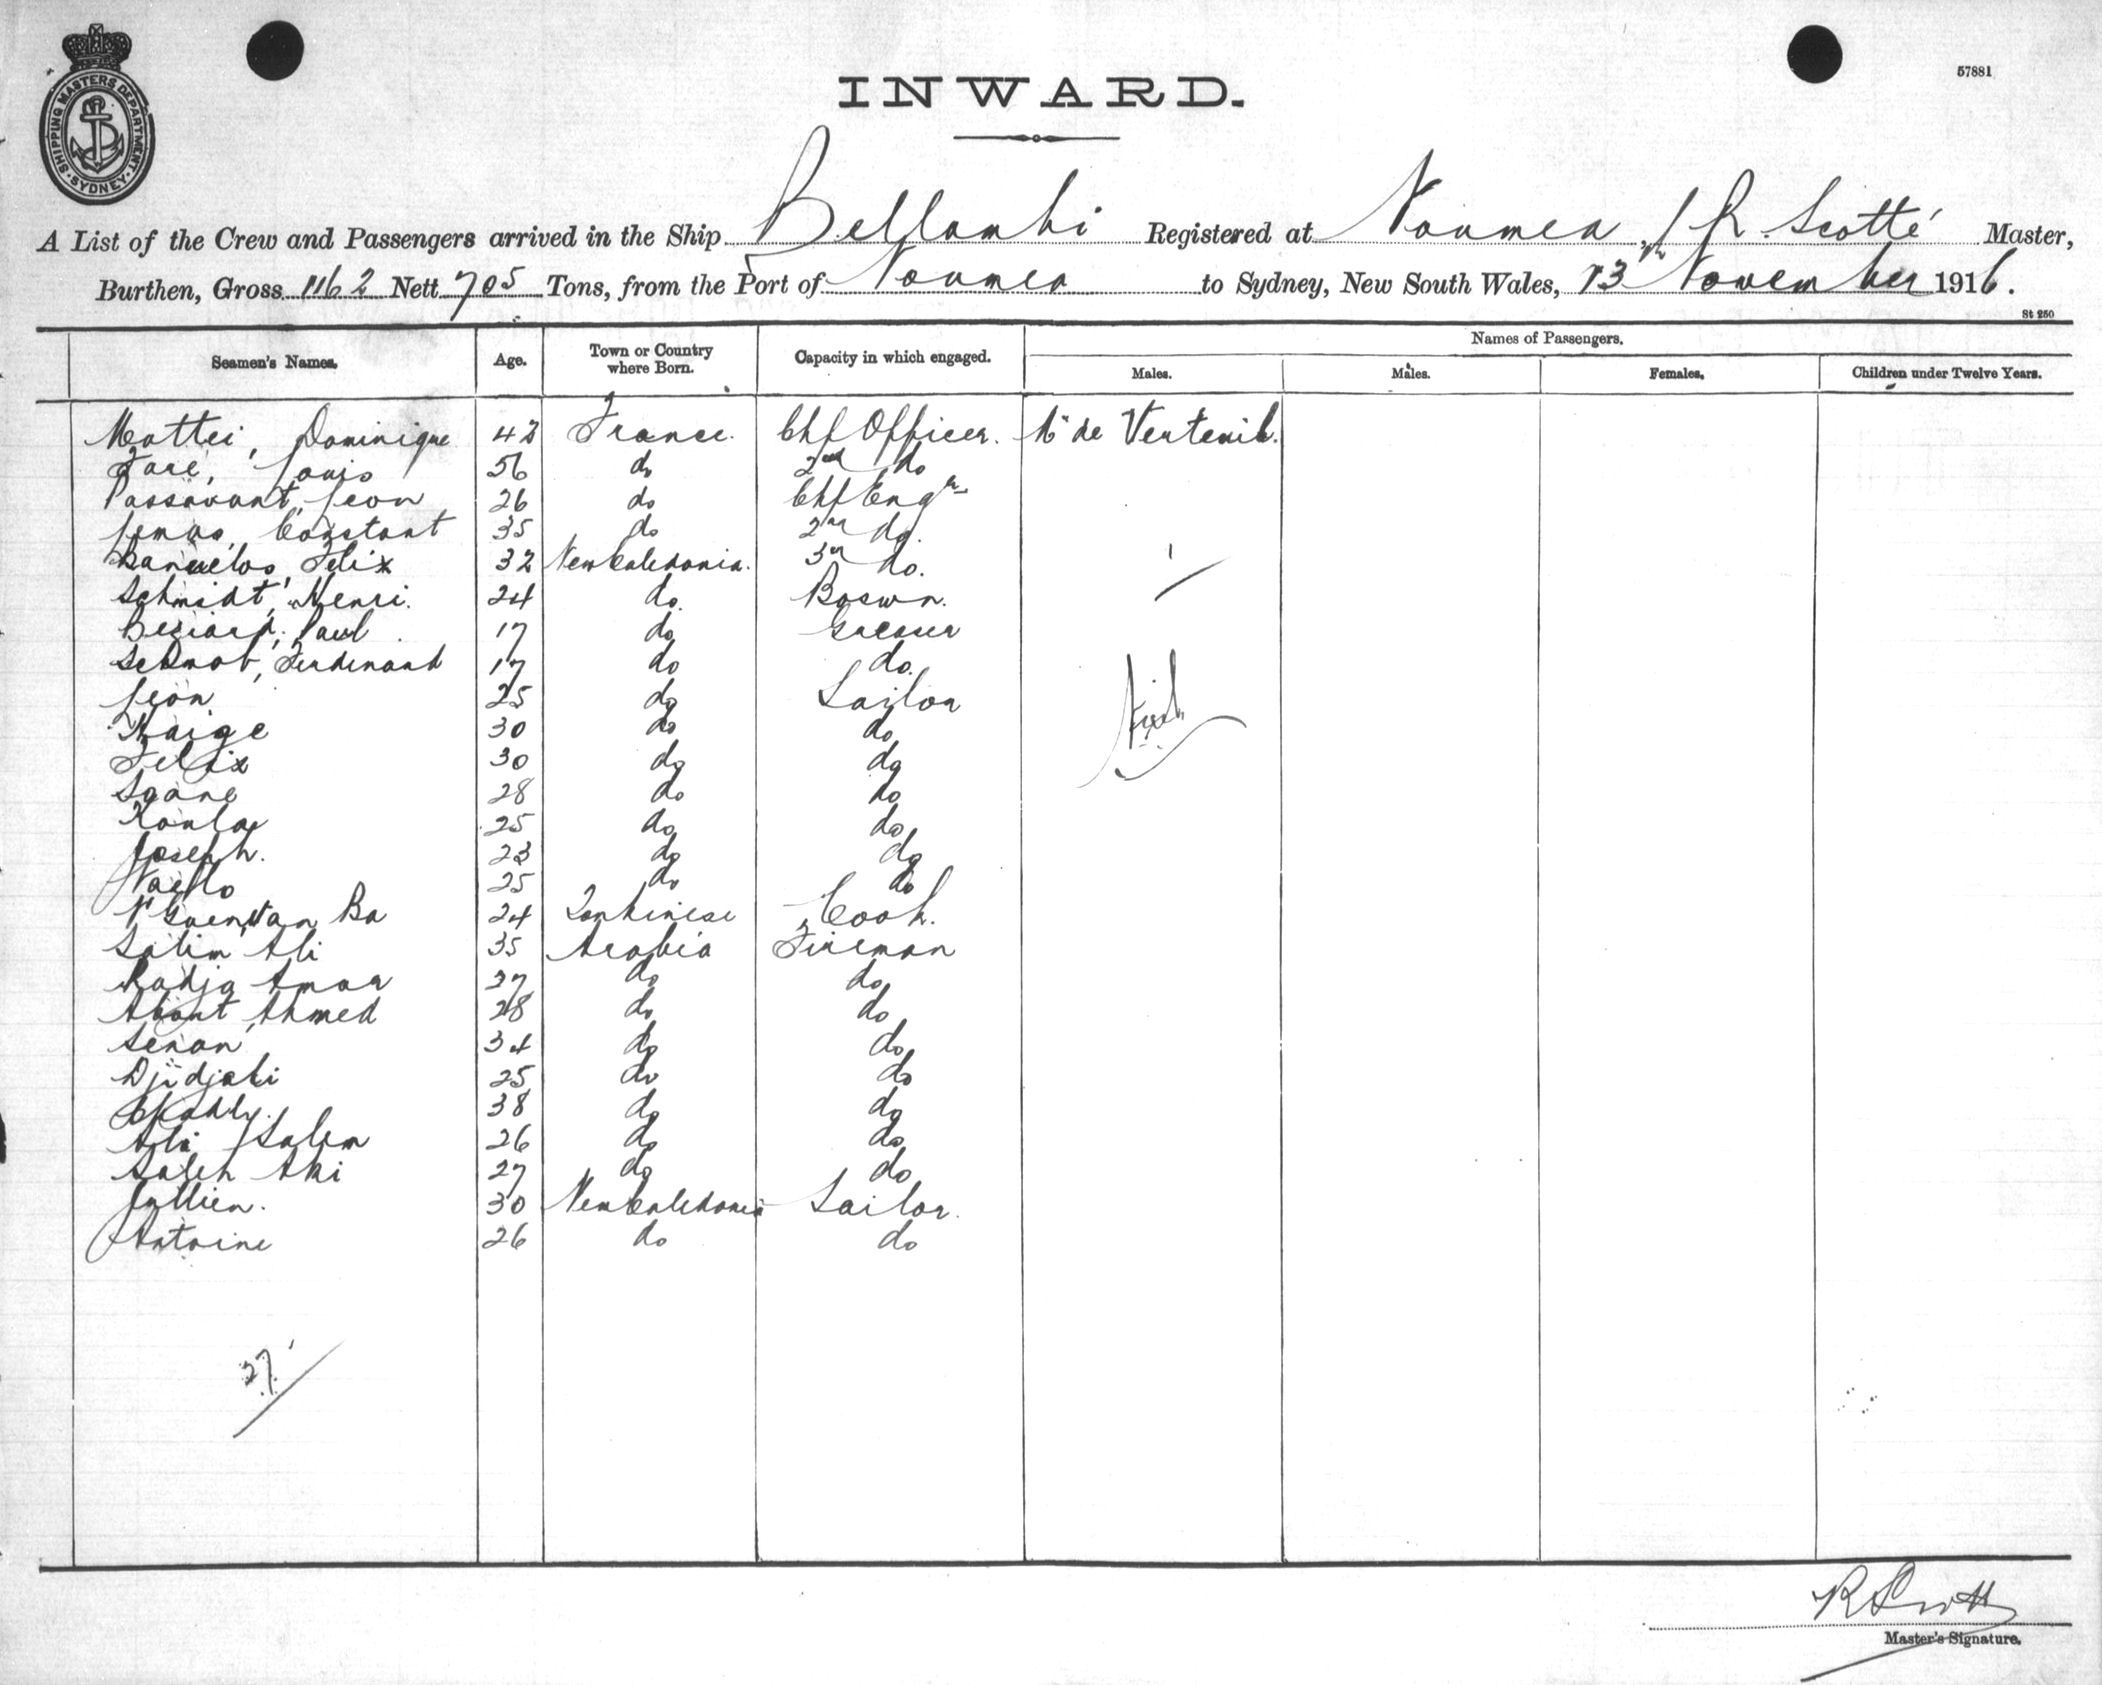 SHIPPING MASTERS DEPARTMENT. SYDNEY.
57881
INWARD.
A List of the Crew and Passengers arrived in the Ship Bellambi Registered at Noumea, R. Scotté Master,
Burthen, Gross 1162 Nett 705 Tons, from the Port of Noumea to Sydney, New South Wales, 13th November 1916.
St 250
Seamen's Names. Age. Town or Country where Born. Capacity in which engaged. Names of Passengers.
Males. Males. Females. Children under Twelve Years.
Mattei, Dominique 42 France. Chf Officer. Mr de Verteuil.
Fare, Louis 56 do 2nd do
Passavant, Leon 26 do Chf Engr
Constant 35 do 2nd do.
Banuelos, Felix 32 New Caledonia. 3rd do.
Schmidt, Henri. 24 do. Boswn.
Beziard, Paul 17 do Greaser
Schwob, Ferdinand 17 do do.
Leon. 25 do Sailor
Waige 30 do do
Felix 30 do do
Soane 28 do do
25 do do
Joseph. 23 do do
Naello 25 do do
N'Guen Van Ba 24 Tonkinese Cook.
Salim Ali 35 Arabia Fireman
Radja Amar 27 do do
Ahmed 28 do do
Senan 34 do do
Djidjali 25 do do
38 do do
Ali Salem 26 do do
Saleh Aki 27 do do
Jullien. 30 New Caledonia Sailor.
Antoine 26 do do
1
27
R Scott
Master's Signature.